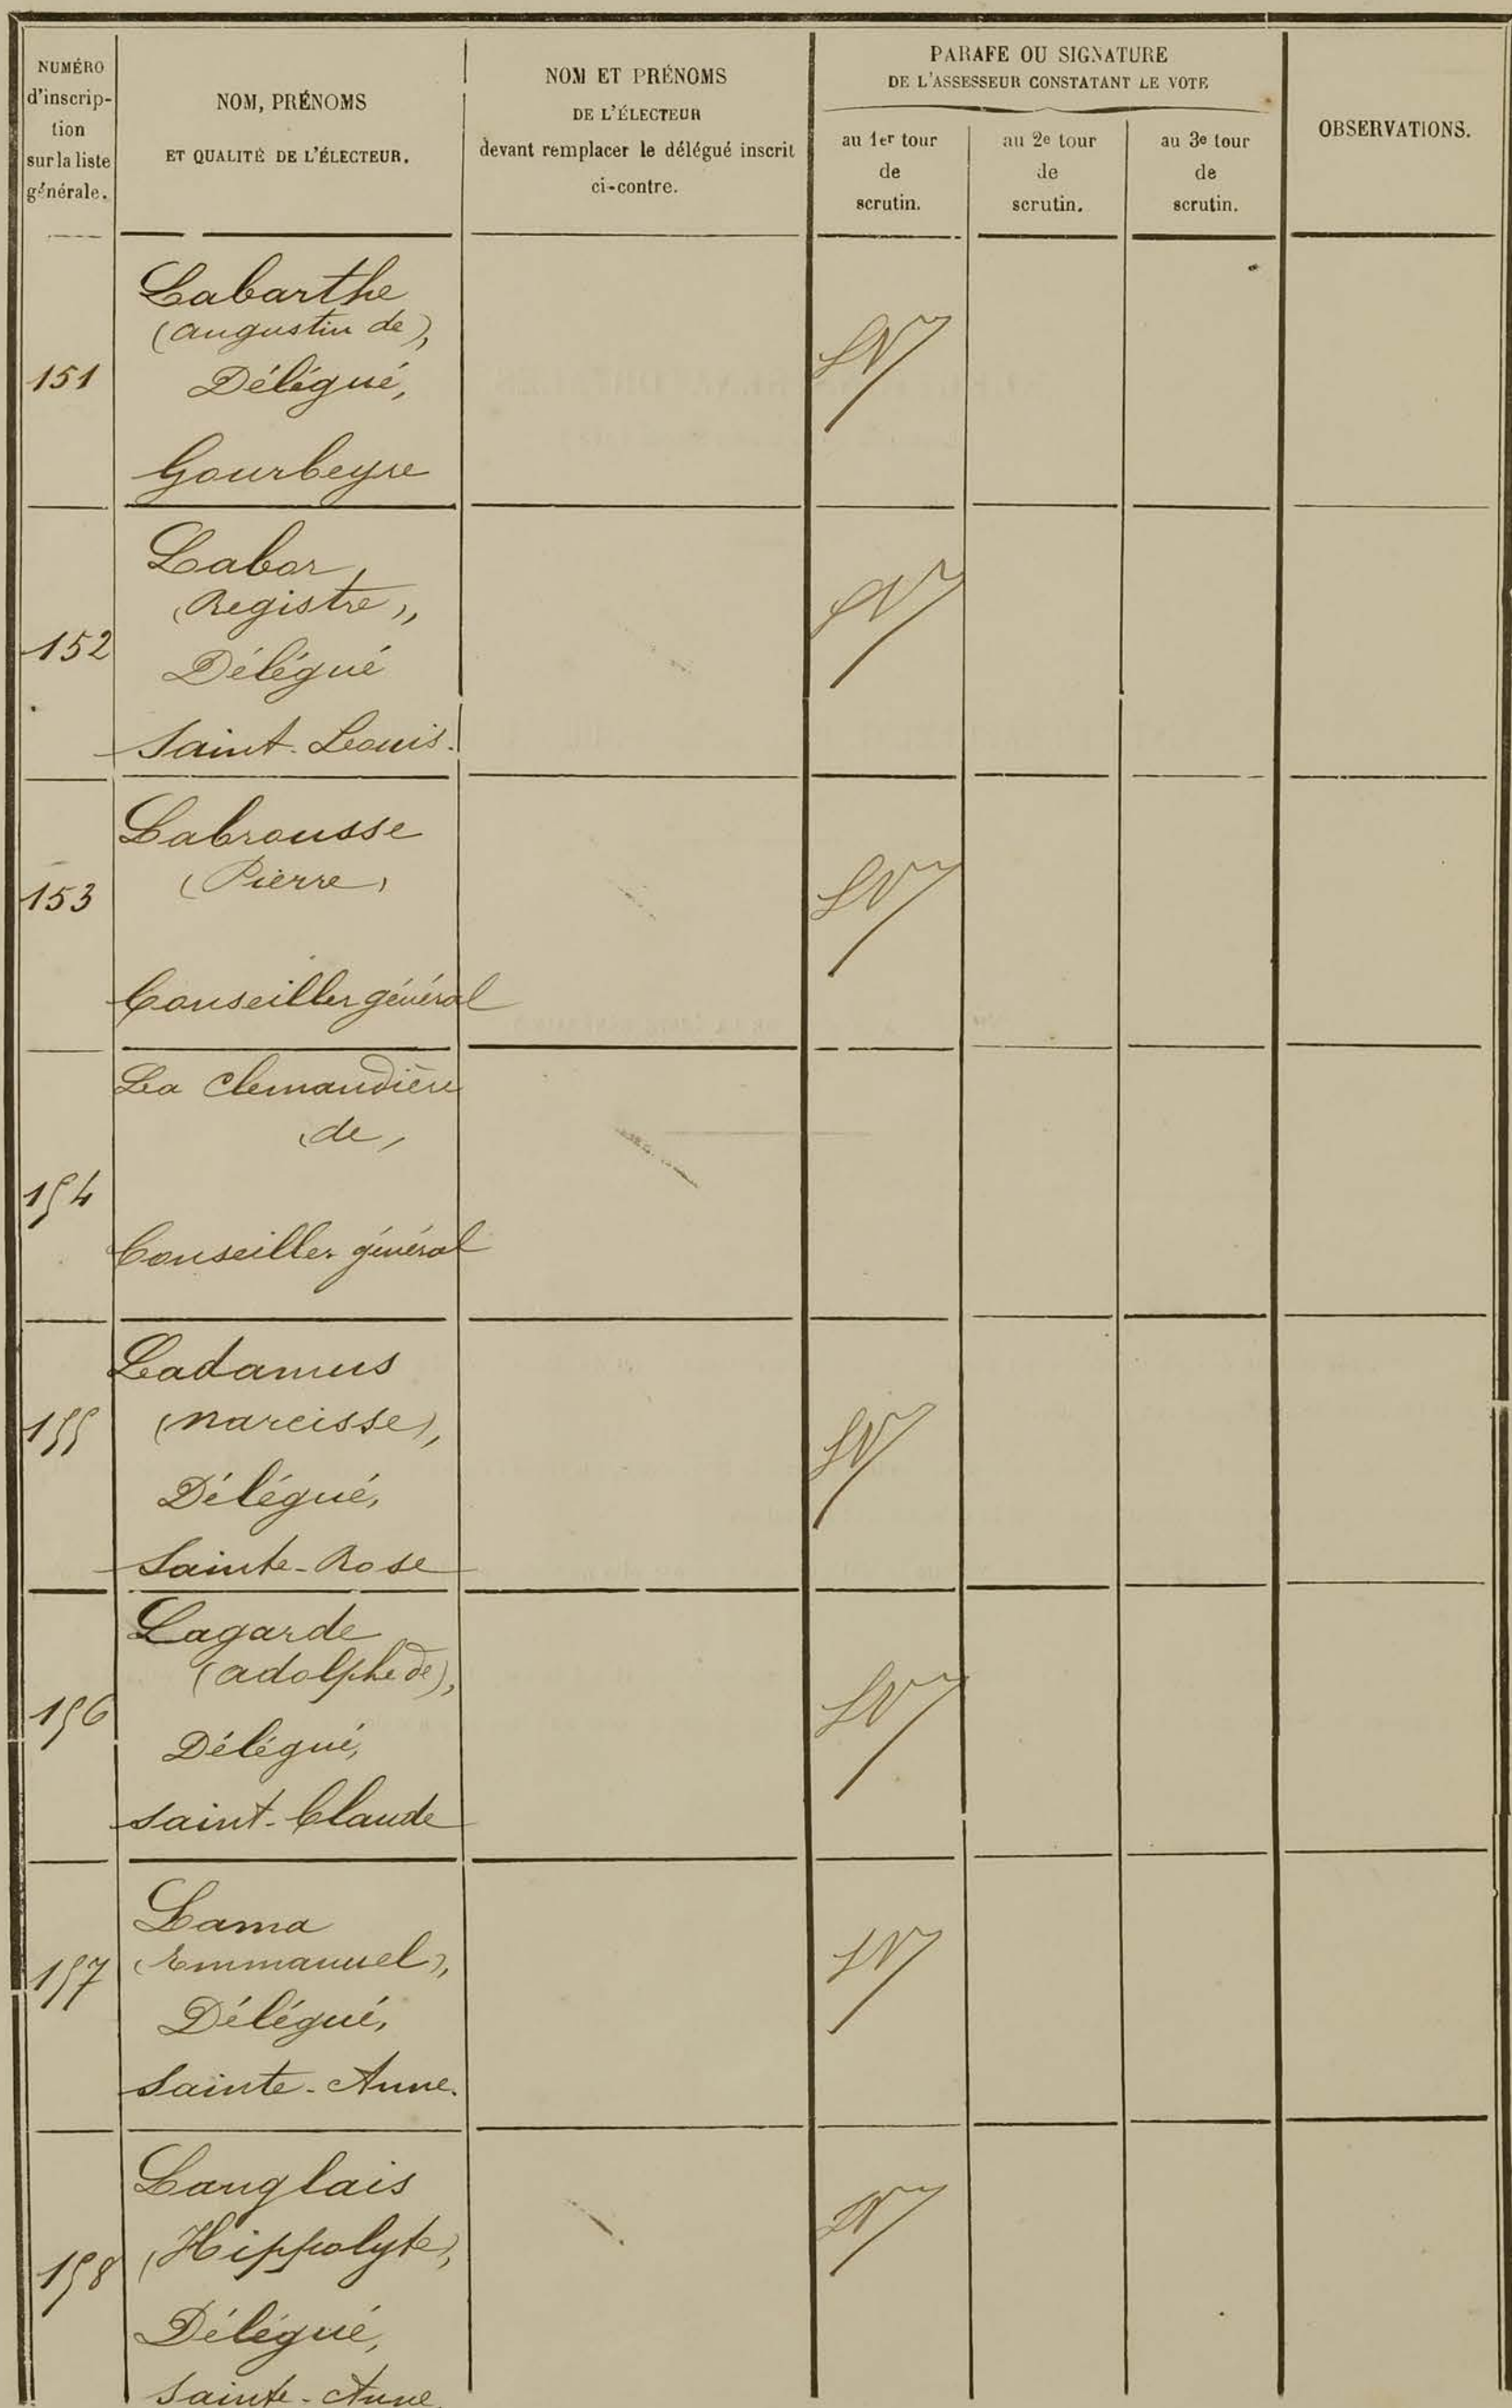 NUMÉRO
d'inscrip-
tion
sur la liste
générale.
NOM, PRÉNOMS
ET QUALITÉ DE L'ÉLECTEUR.
NOM ET PRÉNOMS
DE L'ÉLECTEUR
devant remplacer le délégué inscrit
ci-contre.
PARAFE OU SIGNATURE
DE L'ASSESSEUR CONSTATANT LE VOTE
au 1er tour
de
scrutin.
au 2e tour
de
scrutin.
au 3e tour
de
scrutin.
OBSERVATIONS.
Labarthe
(Augustin de),
151
Délégué,
Gourbeyre
Labor
(Registre),
152
Délégué
Saint-Louis.
Labrousse
(Pierre)
153
Conseiller général
La Clemandière
(de)
154
Conseiller général
Ladamus
155
(Narcisse),
Délégué,
Sainte-Rose
Lagarde
(Adolphe de),
156
Délégué,
Saint-Claude
Lama
157
(Emmanuel),
Délégué,
Sainte-Anne.
Langlais
(Hippolyte),
158
Délégué,
Sainte-Anne.